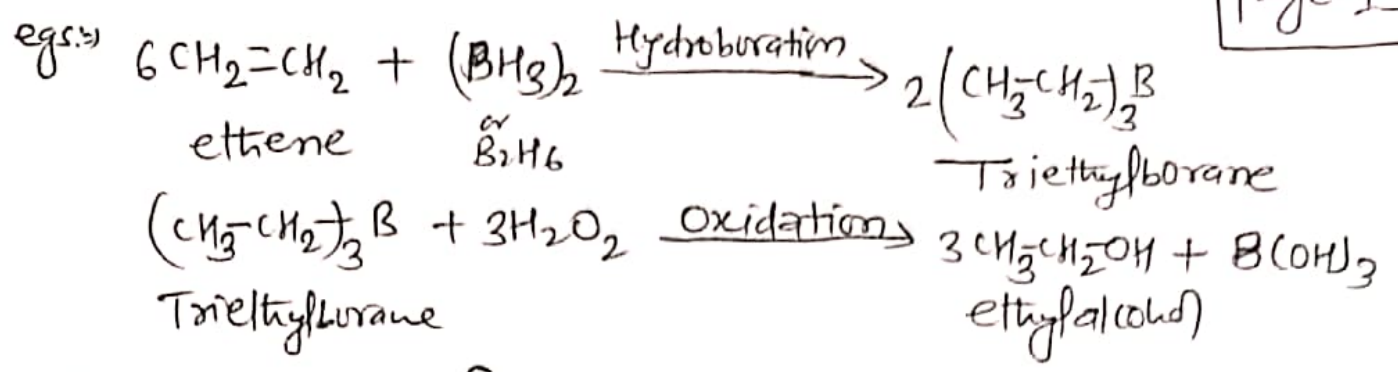 egs:⇒ 6CH₂=CH₂ + (BH₃)₂ Hydroboration → 2(CH₃-CH₂-)₃B
ethene or B₂H₆ Triethylborane
(CH₃-CH₂-)₃B + 3H₂O₂ Oxidation → 3CH₃-CH₂-OH + B(OH)₃
Triethylborane ethylalcohol